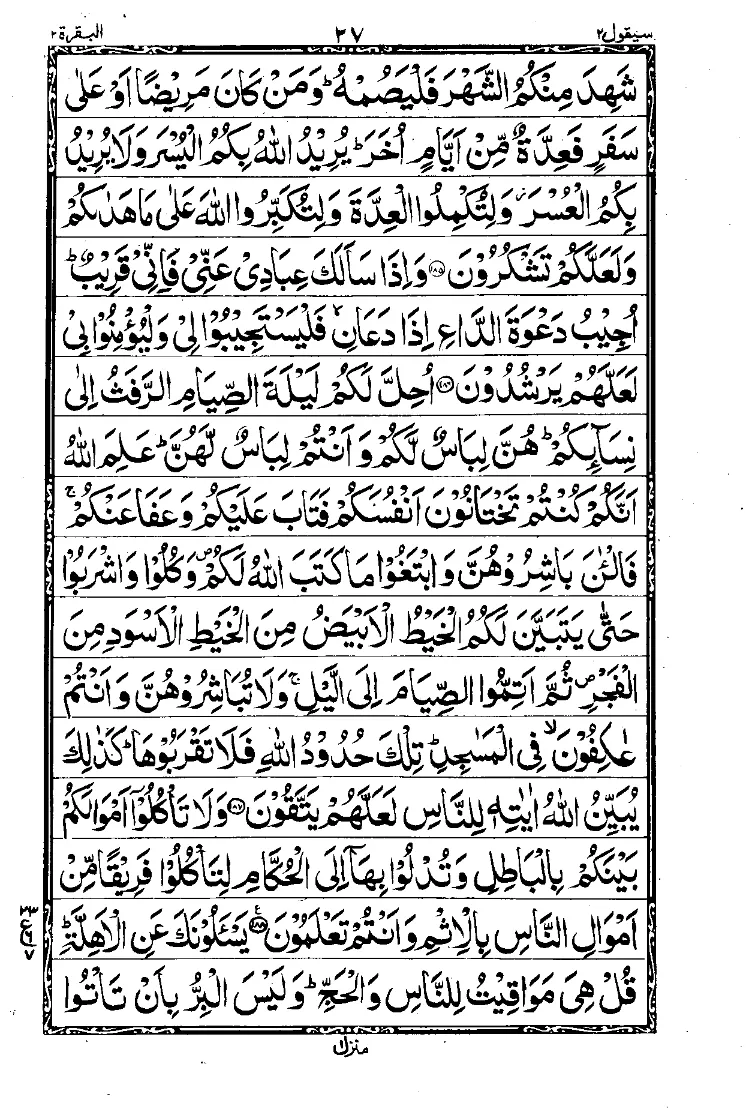 سيقول٢ ٢٧ البقرة٢
شَهِدَ مِنْكُمُ الشَّهْرَ فَلْيَصُمْهُ ؕ وَمَنْ كَانَ مَرِيْضًا اَوْ عَلٰى
سَفَرٍ فَعِدَّةٌ مِّنْ اَيَّامٍ اُخَرَ ؕ يُرِيْدُ اللّٰهُ بِكُمُ الْيُسْرَ وَلَا يُرِيْدُ
بِكُمُ الْعُسْرَ ز وَلِتُكْمِلُوا الْعِدَّةَ وَلِتُكَبِّرُوا اللّٰهَ عَلٰى مَا هَدٰىكُمْ
وَلَعَلَّكُمْ تَشْكُرُوْنَ ۝١٨٥ وَاِذَا سَاَلَكَ عِبَادِىْ عَنِّىْ فَاِنِّىْ قَرِيْبٌ ؕ
اُجِيْبُ دَعْوَةَ الدَّاعِ اِذَا دَعَانِ ۙ فَلْيَسْتَجِيْبُوْا لِىْ وَلْيُؤْمِنُوْا بِىْ
لَعَلَّهُمْ يَرْشُدُوْنَ ۝١٨٦ اُحِلَّ لَكُمْ لَيْلَةَ الصِّيَامِ الرَّفَثُ اِلٰى
نِسَآئِكُمْ ؕ هُنَّ لِبَاسٌ لَّكُمْ وَاَنْتُمْ لِبَاسٌ لَّهُنَّ ؕ عَلِمَ اللّٰهُ
اَنَّكُمْ كُنْتُمْ تَخْتَانُوْنَ اَنْفُسَكُمْ فَتَابَ عَلَيْكُمْ وَعَفَا عَنْكُمْ ۚ
فَالْـٰٔنَ بَاشِرُوْهُنَّ وَابْتَغُوْا مَا كَتَبَ اللّٰهُ لَكُمْ ص وَكُلُوْا وَاشْرَبُوْا
حَتّٰى يَتَبَيَّنَ لَكُمُ الْخَيْطُ الْاَبْيَضُ مِنَ الْخَيْطِ الْاَسْوَدِ مِنَ
الْفَجْرِ ص ثُمَّ اَتِمُّوا الصِّيَامَ اِلَى الَّيْلِ ۚ وَلَا تُبَاشِرُوْهُنَّ وَاَنْتُمْ
عٰكِفُوْنَ ۙ فِى الْمَسٰجِدِ ؕ تِلْكَ حُدُوْدُ اللّٰهِ فَلَا تَقْرَبُوْهَا ؕ كَذٰلِكَ
يُبَيِّنُ اللّٰهُ اٰيٰتِهٖ لِلنَّاسِ لَعَلَّهُمْ يَتَّقُوْنَ ۝١٨٧ وَلَا تَاْكُلُوْٓا اَمْوَالَكُمْ
بَيْنَكُمْ بِالْبَاطِلِ وَتُدْلُوْا بِهَآ اِلَى الْحُكَّامِ لِتَاْكُلُوْا فَرِيْقًا مِّنْ
اَمْوَالِ النَّاسِ بِالْاِثْمِ وَاَنْتُمْ تَعْلَمُوْنَ ۝١٨٨ يَسْـَٔلُوْنَكَ عَنِ الْاَهِلَّةِ ؕ
قُلْ هِىَ مَوَاقِيْتُ لِلنَّاسِ وَالْحَجِّ ؕ وَلَيْسَ الْبِرُّ بِاَنْ تَاْتُوا
منزل